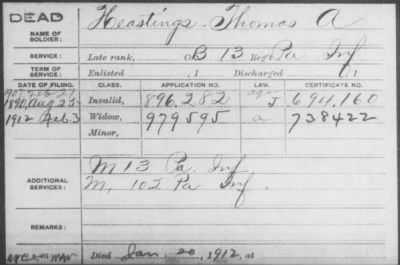 DEAD
NAME OF SOLDIER: Heastings, Thomas A
SERVICE: Late rank, Co B 13 Reg't Pa Inf
TERM OF SERVICE: Enlisted , 1 Discharged , 1
DATE OF FILING. CLASS. APPLICATION NO. LAW. CERTIFICATE NO.
1890, Aug 25 Invalid, 896.282 J 694.160
1912 Feb. 3 Widow, 979595 a 738422
Minor,
ADDITIONAL SERVICES: M 13 Pa Inf
M, 102 Pa Inf.
REMARKS:
Died Jan. 20, 1912, at